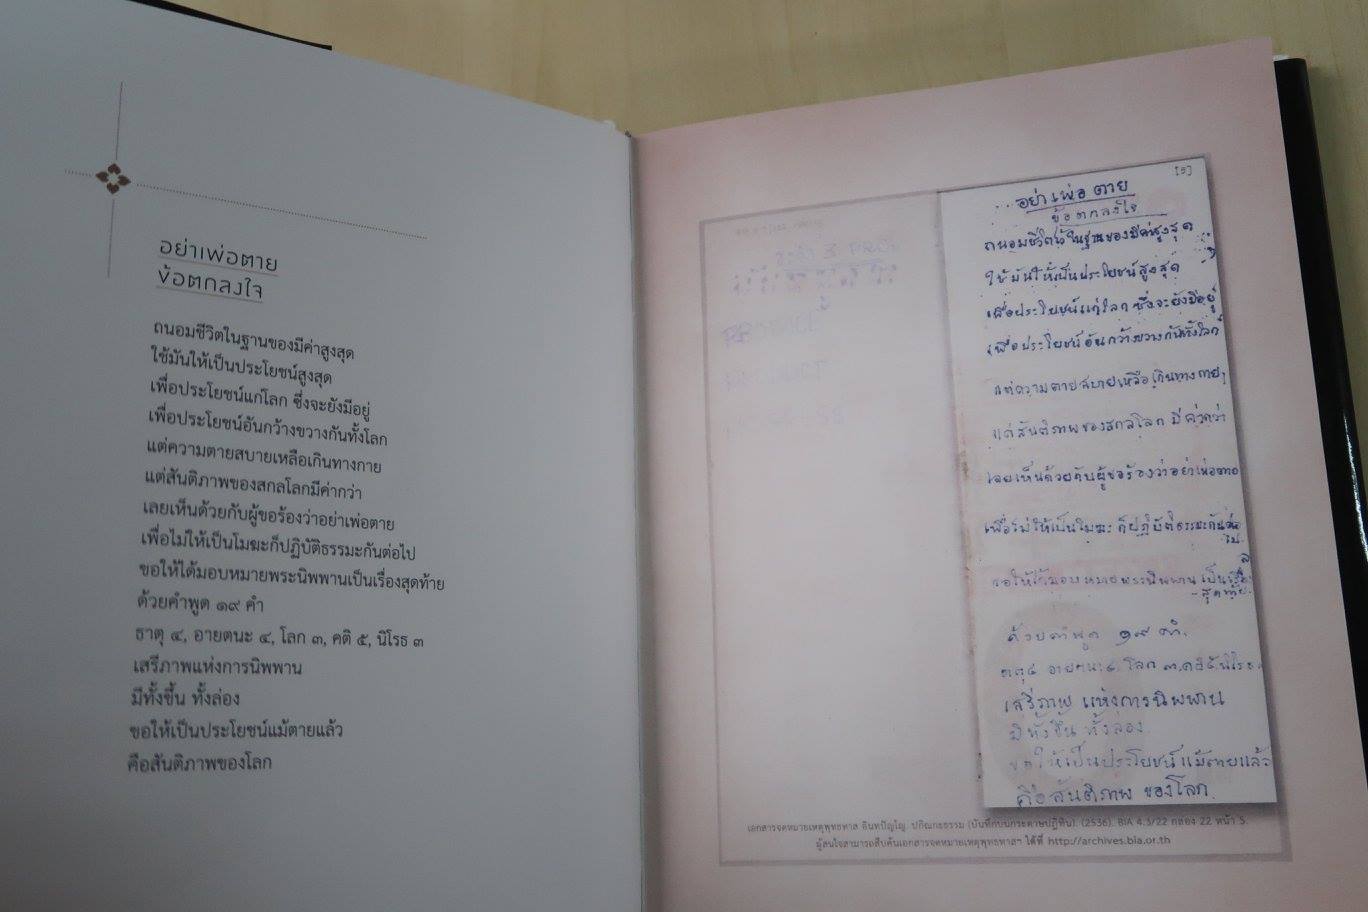 อย่าเพ่อตาย
ข้อตกลงใจ
ถนอมชีวิตในฐานของมีค่าสูงสุด
ใช้มันให้เป็นประโยชน์สูงสุด
เพื่อประโยชน์แก่โลก ซึ่งจะยังมีอยู่
เพื่อประโยชน์อันกว้างขวางกันทั้งโลก
แต่ความตายสบายเหลือเกินทางกาย
แต่สันติภาพของสกลโลกมีค่ากว่า
เลยเห็นด้วยกับผู้ขอร้องว่าอย่าเพ่อตาย
เพื่อไม่ให้เป็นโมฆะก็ปฏิบัติธรรมะกันต่อไป
ขอให้ได้มอบหมายพระนิพพานเป็นเรื่องสุดท้าย
ด้วยคำพูด ๑๙ คำ
ธาตุ ๔, อายตนะ ๔, โลก ๓, คติ ๕, นิโรธ ๓
เสรีภาพแห่งการนิพพาน
มีทั้งขึ้น ทั้งล่อง
ขอให้เป็นประโยชน์แม้ตายแล้ว
คือสันติภาพของโลก
[๕]
อย่าเพ่อ ตาย
ข้อตกลงใจ
ถนอมชีวิตไว้ในฐานของมีค่าสูงสุด
ใช้มันให้เป็นประโยชน์สูงสุด
เพื่อประโยชน์แก่โลก ซึ่งจะยังมีอยู่
เพื่อประโยชน์อันกว้างขวางกันทั้งโลก
แต่ความตายสบายเหลือเกินทางกาย
แต่สันติภาพของสกลโลก มีค่ากว่า
เลยเห็นด้วยกับผู้ขอร้องว่าอย่าเพ่อตาย
เพื่อไม่ให้เป็นโมฆะ ก็ปฏิบัติธรรมะกันต่อ
ไป
ขอให้ได้มอบหมายพระนิพพาน เป็นเรื่อง
สุดท้าย
ด้วยคำพูด ๑๙ คำ.
ธาตุ ๔ อายตนะ ๔, โลก ๓, คติ ๕, นิโรธ ๓
เสรีภาพ แห่งการนิพพาน
มีทั้งขึ้น ทั้งล่อง.
ขอให้เป็นประโยชน์แม้ตายแล้ว
คือ สันติภาพ ของโลก.
เอกสารจดหมายเหตุพุทธทาส อินทปัญโญ. ปกิณกะธรรม (บันทึกบนกระดาษปฏิทิน). (2536). BIA 4.3/22 กล่อง 22 หน้า 5.
ผู้สนใจสามารถสืบค้นเอกสารจดหมายเหตุพุทธทาสฯ ได้ที่ http://archives.bia.or.th